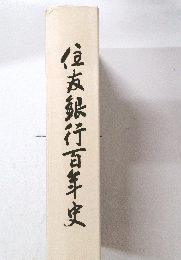 住友銀行百年史